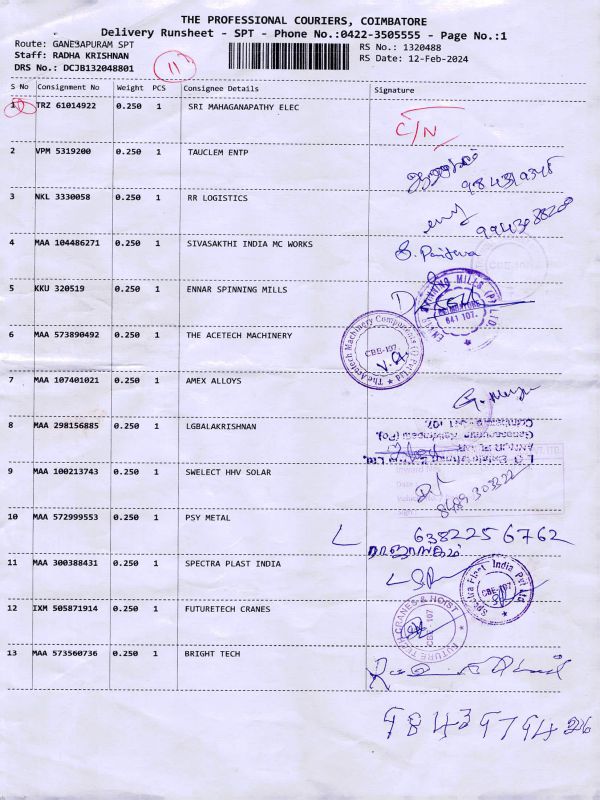 THE PROFESSIONAL COURIERS, COIMBATORE
Delivery Runsheet - SPT - Phone No.:0422-3505555 - Page No.:1
Route: GANESAPURAM SPT
RS No.: 1320488
Staff: RADHA KRISHNAN
RS Date: 12-Feb-2024
DRS No.: DCJB132048801
11
S No Consignment No Weight PCS Consignee Details Signature
1 TRZ 61014922 0.250 1 SRI MAHAGANAPATHY ELEC
C/N
2 VPM 5319200 0.250 1 TAUCLEM ENTP
3 NKL 3330058 0.250 1 RR LOGISTICS
4 MAA 104486271 0.250 1 SIVASAKTHI INDIA MC WORKS
5 KKU 320519 0.250 1 ENNAR SPINNING MILLS
641 107.
6 MAA 573890492 0.250 1 THE ACETECH MACHINERY
The Acetech Machinery Components (I) Pvt Ltd
CBE-107.
7 MAA 107401021 0.250 1 AMEX ALLOYS
8 MAA 298156885 0.250 1 LGBALAKRISHNAN
9 MAA 100213743 0.250 1 SWELECT HHV SOLAR
8489 303222
10 MAA 572999553 0.250 1 PSY METAL
6382256762
11 MAA 300388431 0.250 1 SPECTRA PLAST INDIA
Spectra Plast India Pvt Ltd
CBE-107
12 IXM 505871914 0.250 1 FUTURETECH CRANES
FUTURE TECH CRANES & HOIST
CBE-107
13 MAA 573560736 0.250 1 BRIGHT TECH